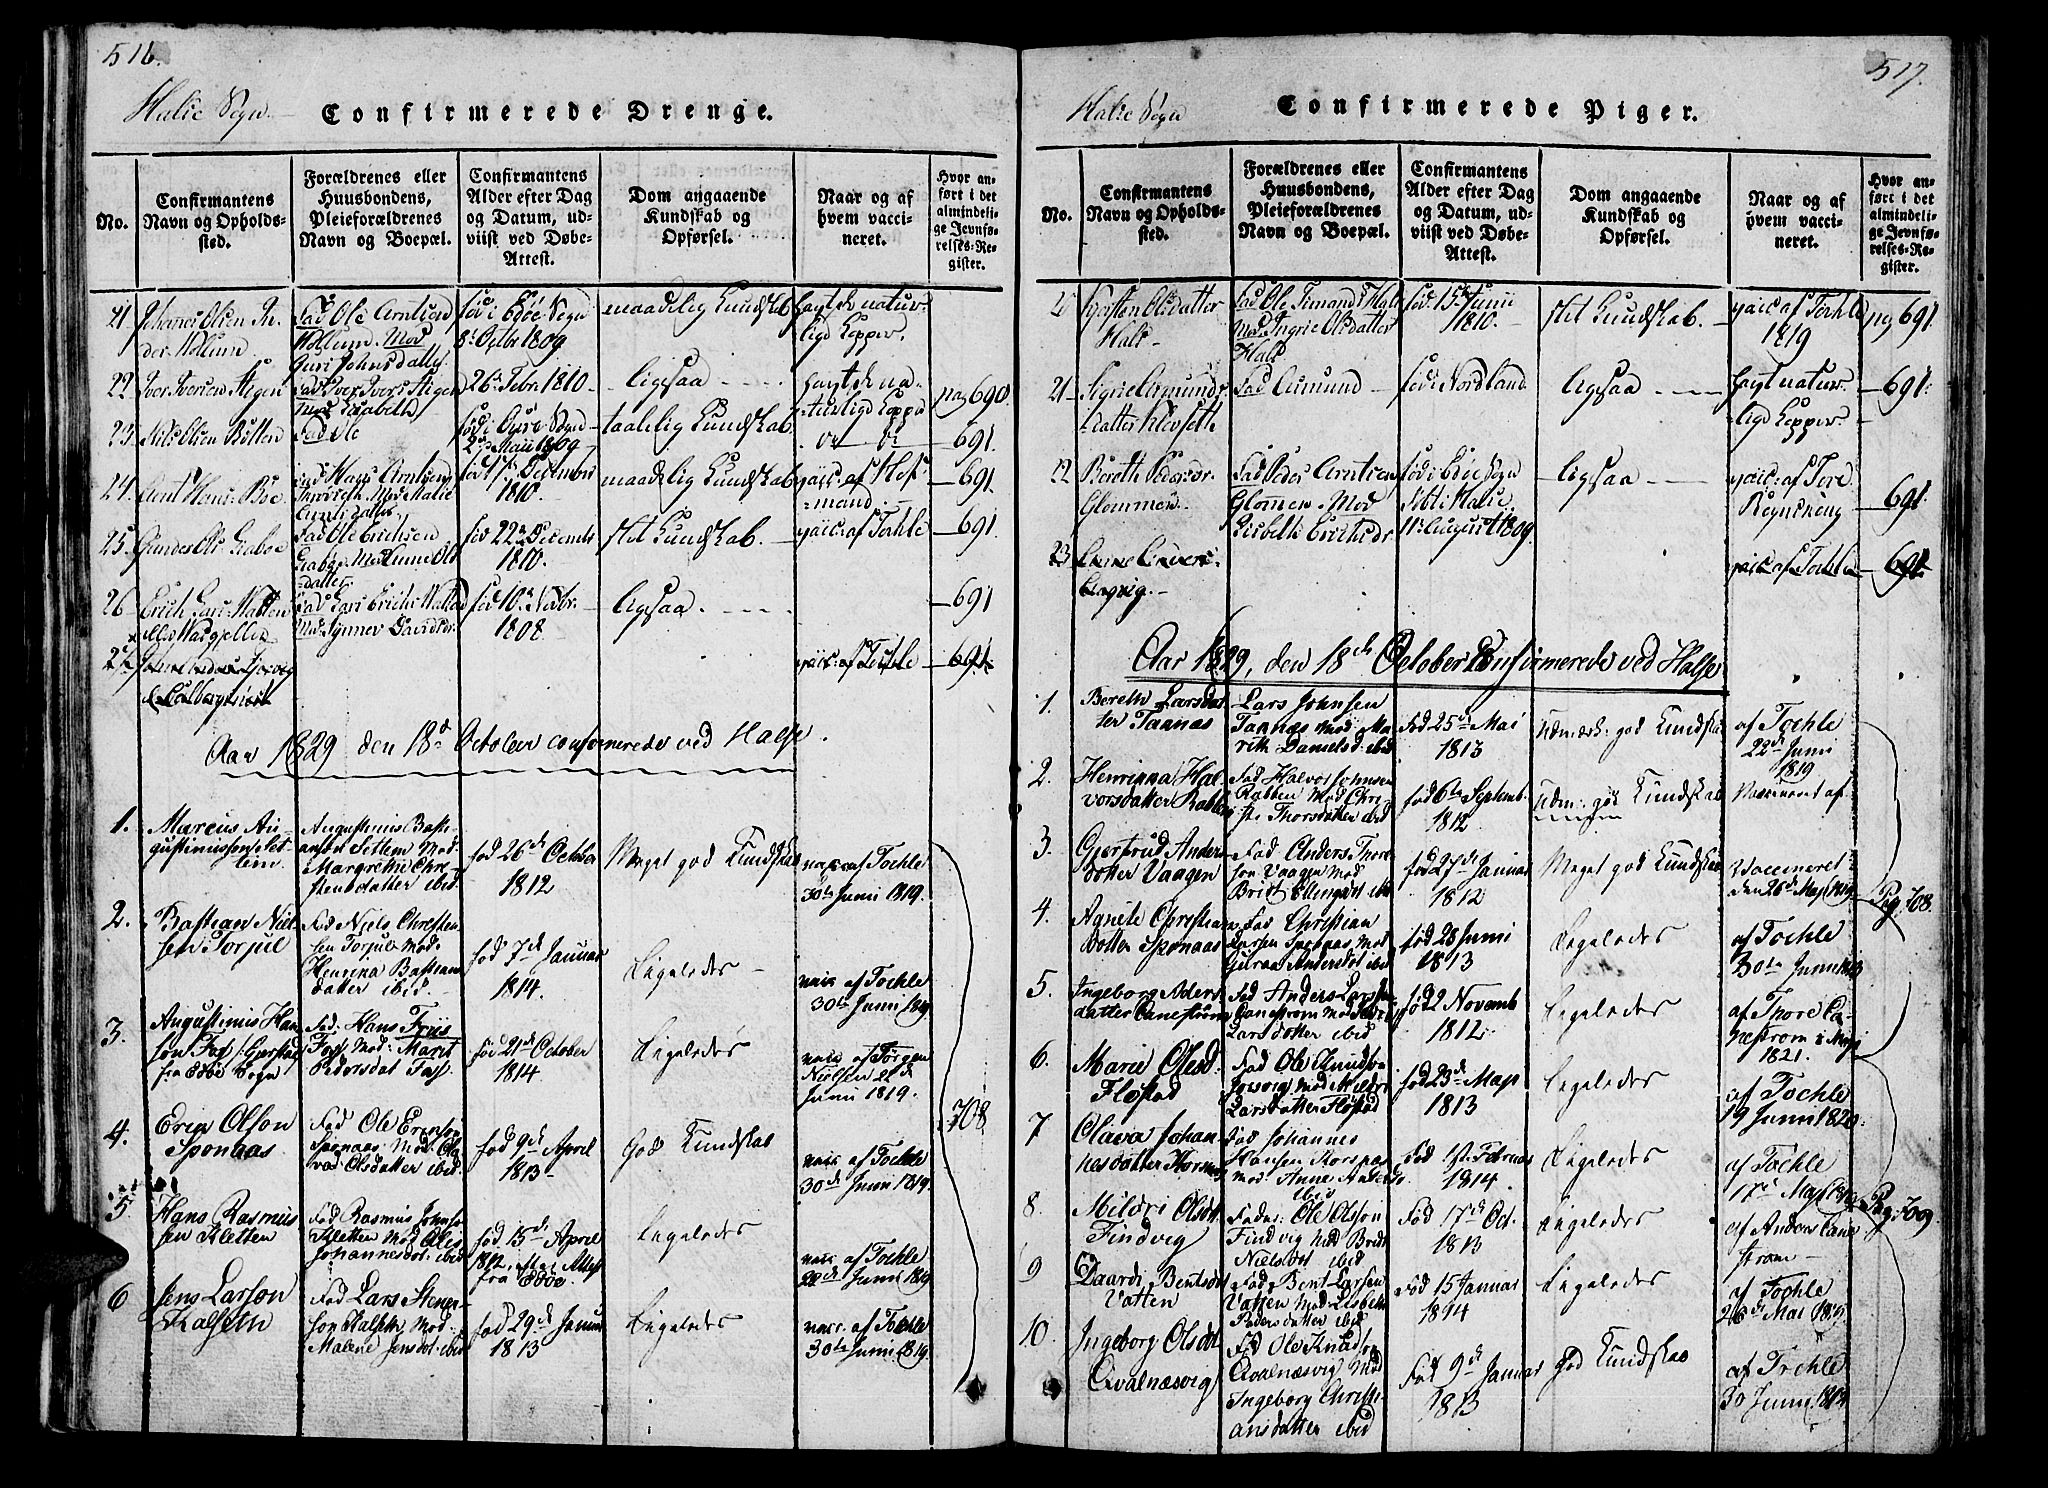 516.
Halse Sogn
Confirmerede Drenge.
No.
Confirmantens
Navn og Opholds-
sted.
Forældrenes eller
Huusbondens,
Pleieforældrenes
Navn og Boepæl.
Confirmantens
Alder efter Dag
og Datum, ud-
viist ved Døbe-
Attest.
Dom angaaende
Kundskab og
Opførsel.
Naar og af
hvem vacci-
neret.
Hvor an-
ført i det
almindeli-
ge Jevnfø-
relses-Re-
gister.
21.
Fad Ole Arntsen
Guri Johnsdatter
født i Edøe Sogn
8de Octbr 1809
maadelig Kundskab
havt de natur-
lige Kopper.
22
Iver Iversen Stigen
Fad Iver Ivers Stigen
Mod Lisabeth
26de Febr. 1810
ligesaa
havt de na-
turlige Kopper
pag 690
23.
Nils Olsen Bøtten
Fad Ole
født i Øure Sogn
27 Maii 1809
taalelig Kundskab
691.
24.
Arnt Hans. Boe
Fad Hans Arntsen
født 17de December
1810.
maadelig Kundskab
vacc. af Hof-
mand.
691.
25.
Fad Ole Erichsen
Mod Anne Ols-
datter
født 22de Decembr
1810.
slet Kundskab.
vacc. af Tøchle
691.
26
født 10de Novbr.
1808
ligesaa.
691
27
vacc. af Tøchle
691.
Aar 1829 den 18de October confirmerede ved Halse.
1.
Marcus Au-
gustinussen Set-
tem
Augustinus Basti-
ansen Settem Mod
Margrethe Chri-
stensdatter ibid
fød 26de October
1812
Meget god Kundskab
vacc. af Tøchle
30te Junii 1819.
2.
Bastian Niel-
sen Torjul
Fad Niels Christen-
sen Torjul Mod
Henrina Bastian
datter ibid
fød 7de Januar
1814.
Ligeledes
vacc. af Tøchle
30te Junii 1819
3.
Augustinus Han-
sen Foss /Gjerstad
fra Edøe Sogn
Fad: Hans Friis
Foss Mod: Marit
Pedersdat Foss.
fød 21de October
1814.
Ligeledes
vacc. af Jørgen
Nielsen 22de
Junii 1819.
708
4.
Eric Olsøn
Sponaas
Fad Ole Ericsøn
Sponaas Mod Ol-
va Olsdatter ibid
fød 9de April
1813
God Kundskab
vacc. af Tøchle
30de Junii 1819.
5
Hans Rasmus
sen Kletten
Fad Rasmus Johnsø
Kletten Mod Oles
Johannesdot. ibid
fød 15de April
1812, Mai Attest
fra Edøe.
Ligeledes
vacc. af Tøchle
22de Junii 1819
6
Jens Larsøn
Kalsetm
Fad Lars Stener-
søn Kalsetm Mod
Malene Jensdot. ibid
fød 29de Januar
1813
Ligeledes
vacc. af Tøchle
30te Junii 1819.
517.
Halse Sogn
Confirmerede Piger.
No.
Confirmantens
Navn og Opholds-
sted.
Forældrenes eller
Huusbondens,
Pleieforældrenes
Navn og Boepæl.
Confirmantens
Alder efter Dag
og Datum, ud-
viist ved Døbe-
Attest.
Dom angaaende
Kundskab og
Opførsel.
Naar og af
hvem vacci-
neret.
Hvor an-
ført i det
almindeli-
ge Jevnfø-
relses-Re-
gister.
Kjersten Olsdatter
Hals
Mod Ingrie Olsdatter
Hals
født 15de Junii
1810.
slet Kundskab.
vacc. af Tøchle
1819
pag 691
21
Signe Amunds
datter Klevsette
Fad Amund
født i Nordland
ligesaa
havt natur-
lige Kopper
691.
22
Bereth Pedersdr
Glommen
Fad Peder Arntsen
Glommen. Mod
Lisbeth Erichsdr
født i Edøe Sogn
11te August 1809.
ligesaa
vacc. af Tore
691
23
vacc. af Tøchle
691.
Aar 1829, den 18de October confirmerede ved Halse
1.
Bereth Larsdat
ter Taknæs
Lars Johnsen
Taknæs Mod Ma-
rith Danielsd. ibid
Fød 25de Mai
1813
Udmærk: god Kundskab
af Tochle
22de Junii
1819
2.
Henrinna Hal-
vorsdatter Rabben
Fad Halvor Johnsen
Rabben Mod Chri-
sti Thorsdatter ibid
fød 6te Septemb.
1812.
Udm: god Kundskab
Vaccineret af
3.
Gjertrud Anders
datter Vaagen
Fad Anders Thore
søn Vaagen Mod
Brit Ellingsdt ibid
fød 27de Januar
1812
Meget god Kundskab
Vaccineret
den 26de Maji 1819
Pag. 708.
4.
Agnete Christians
datter Sponaas
Fad Christian
Larsen Sponaas Mod
Guraa Andersdt ibid
fød 28 Junii
1813
Ligeledes
af Tochle
30te Junii 1819
5.
Ingeborg Anders
datter Canestrøm
Fad Anders Larsen
Canestrøm Mod
Larsdatter ibid
fød 2 Novemb
1812.
Ligeledes
af Thore Ca-
nestrøm i Maji
1821.
6.
Marie Olesd.
Flostad
Fad Ole Knudsøn
Jørsvig Mod Mildri
Larsdatter Flostad
fød 23de Maji
1813
Ligeledes
af Tochle
19 Junii 1820
7
Olava Johan
nesdatter Kornæs
Fad Johannes
Hansen Kornæs
Mod Anne Andersd.
ibid
Fød 1st. Februar
1814.
Ligeledes
af Tochle
17de Maji 1819
8.
Mildri Olsdt
Findvig
Fader: Ole Olsøn
Findvig Mod Brit
Nielsdt ibid
Fød 17de Oct.
1813
Ligeledes
af Anders Cane
strøm
Pag 709
9
Daardi Bentsdt
Vatten
Fad Bent Larsen
Vatten Mod Lisbeth
Pedersdatter ibid
Fød 15 Januar
1814
Ligeledes
af Tochle
26de Mai 1819.
10.
Ingeborg Olsdt
Qvalnæsvig
Fad Ole Knudsøn
Qvalnæsvig Mod
Ingeborg Christi-
ansdatter ibid
Fød 9de Januar
1813
God Kundskab
af Tochle
30 Junii 1814